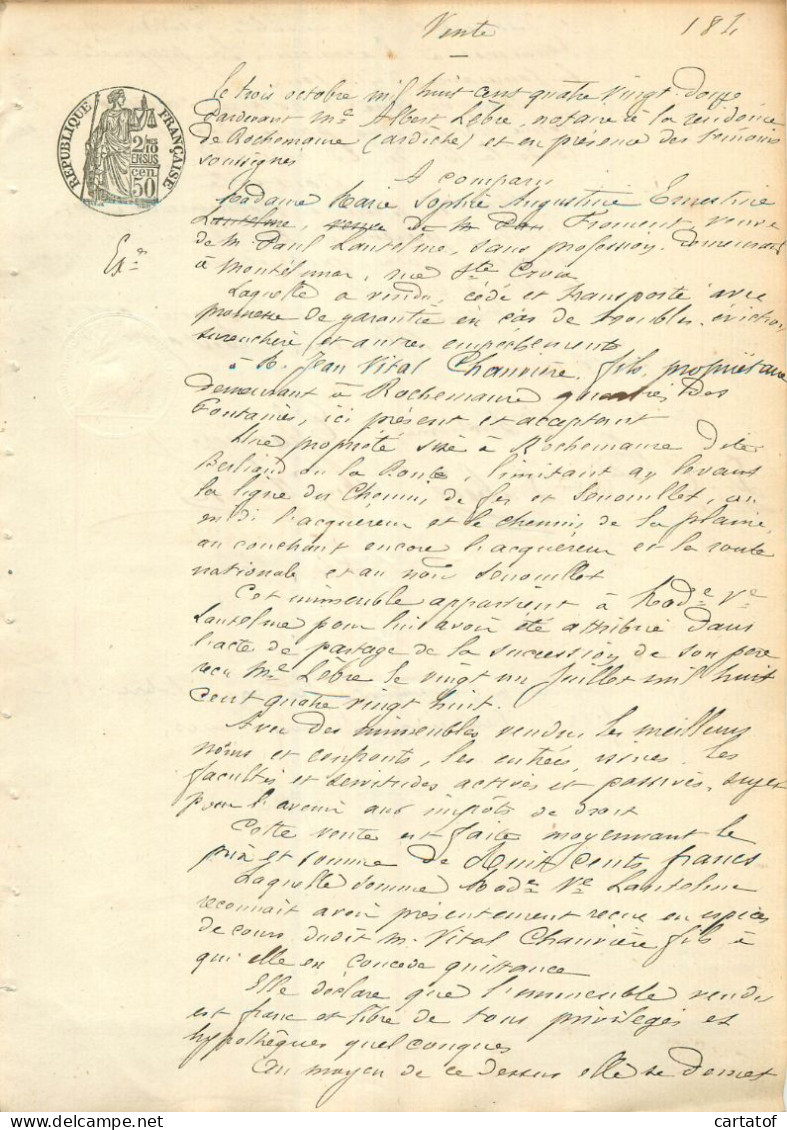 Vente
184
RÉPUBLIQUE FRANÇAISE
2/10
EN SUS
50 cen
Exre
Le trois octobre mil huit cent quatre vingt-douze
Pardevant Me Albert Lèbre, notaire à la résidence
de Rochemaure (ardèche) et en présence des témoins
soussignés
A comparu
Madame Marie Sophie Augustine Ernestine
Lantelme, veuve de M Froment, veuve
de M Paul Lantelme, sans profession, demeurant
à Montélimar, rue Ste Croix
Laquelle a vendu, cédé et transporté avec
promesse de garantie en cas de troubles, éviction
surenchère et autres empechements
à M. Jean Vital Chauvière fils, propriétaire
demeurant à Rochemaure quartier des
Fontaines, ici présent et acceptant
Une propriété sise à Rochemaure dite
ou la Route, limitant au levant
la ligne du Chemin de fer et Senouillet, au
midi l'acquéreur et le chemin de la plaine,
au couchant encore l'acquéreur et la route
nationale et au nord Senouillet
Cet immeuble appartient à Made Ve
Lantelme pour lui avoir été attribué dans
l'acte de partage de la succession de son père
reçu Me Lèbre le vingt un Juillet mil huit
cent quatre vingt huit.
Avec des immeubles vendus les meilleurs
noms et confronts, les entrées, issues, les
facultés et servitudes actives et passives, sujet
pour l'avenir aux impôts de droit
Cette vente est faite moyennant le
prix et somme de Huit cents francs
Laquelle somme Made Ve Lantelme
reconnait avoir présentement reçue en espèces
de cours dudit M. Vital Chauvière fils à
qui elle en concede quittance
Elle déclare que l'immeuble vendu
est franc et libre de tous privilèges et
hypothèques quelconques
Au moyen de ce dessus elle se demet
cartatof